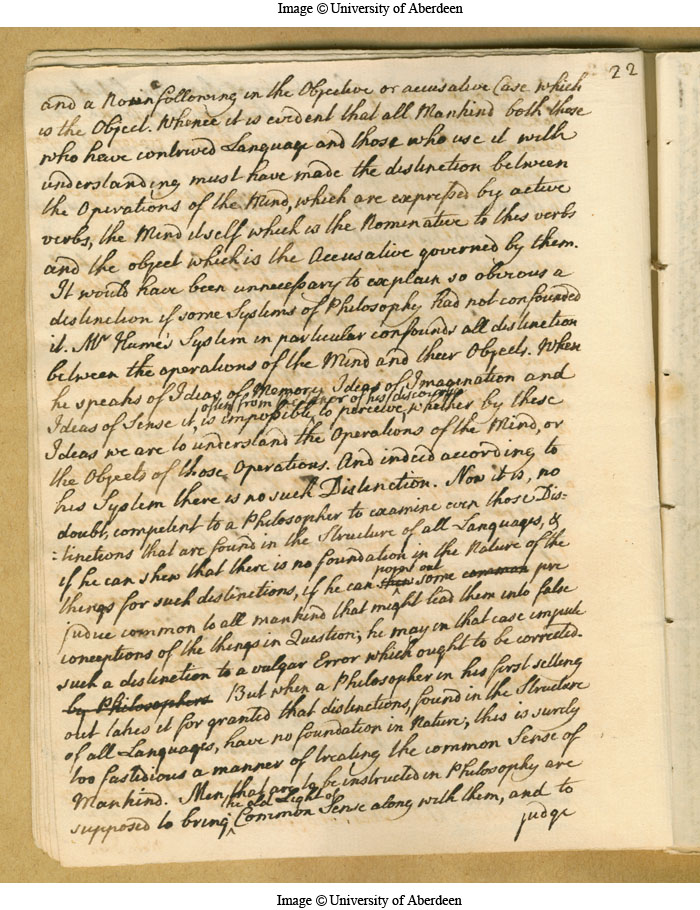 Image © University of Aberdeen
22
and a Noun following in the Objective or accusative Case which
is the Object. Whence it is evident that all Mankind both those
who have contrived Language and those who use it with
understanding must have made the distinction between
the Operations of the Mind, which are expressed by active
verbs, the Mind itself which is the Nominative to this verbs
and the object which is the Accusative governed by them.
It would have been unnecessary to explain so obvious a
distinction if some Systems of Philosophy had not confounded
it. Mr Hume's System in particular confounds all distinction
between the operations of the Mind and their Objects. When
he speaks of Ideas of Memory Ideas of Imagination and
often from the tenor of his discourse
Ideas of Sense it, is impossible, to perceive, whether by these
Ideas we are to understand the Operations of the Mind, or
the Objects of those Operations. And indeed according to
his System there is no such Distinction. Now it is, no
doubt, competent to a Philosopher to examine even those Dis:
:tinctions that are found in the Structure of all Languages, &
if he can shew that there is no foundation in the Nature of the
point out
things for such distinctions, if he can shew some common pre
judice common to all mankind that might lead them into false
conceptions of the things in Question; he may in that case impute
such a distinction to a vulgar Error which ought to be corrected.
by Philosophers But when a Philosopher in his first setting
out takes it for granted that distinctions, found in the Structure
of all Languages, have no foundation in Nature; this is surely
too fastidious a manner of treating the common Sense of
Mankind. Men that are to be instructed in Philosophy are
the old Light of
supposed to bring Common Sense along with them, and to
judge
Image © University of Aberdeen